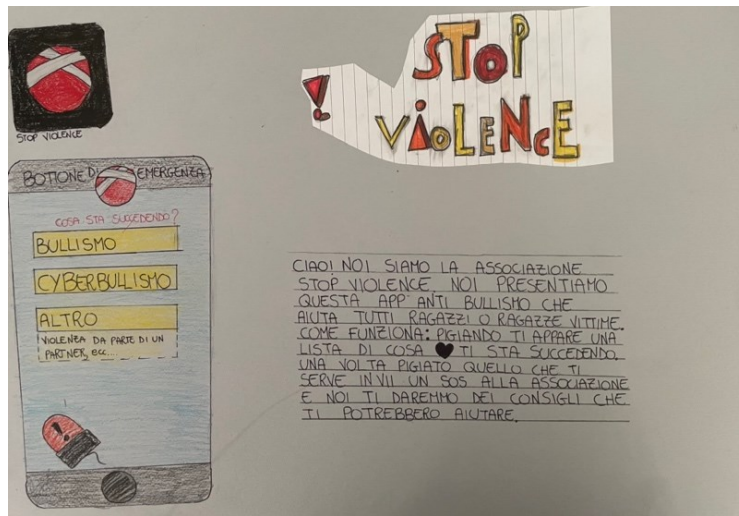 STOP VIOLENCE
STOP
VIOLENCE
BOTTONE DI EMERGENZA
COSA STA SUCCEDENDO?
BULLISMO
CYBERBULLISMO
ALTRO
VIOLENZA DA PARTE DI UN
PARTNER, ECC...
!
CIAO! NOI SIAMO LA ASSOCIAZIONE
STOP VIOLENCE. NOI PRESENTIAMO
QUESTA APP ANTI BULLISMO CHE
AIUTA TUTTI RAGAZZI O RAGAZZE VITTIME.
COME FUNZIONA: PGIANDO TI APPARE UNA
LISTA DI COSA TI STA SUCCEDENDO.
UNA VOLTA PIGIATO QUELLO CHE TI
SERVE INVII UN SOS ALLA ASSOCIAZIONE
E NOI TI DAREMMO DEI CONSIGLI CHE
TI POTREBBERO AIUTARE.